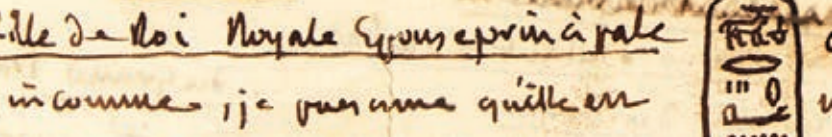 ille de Roi Royale Epouse principale
inconnue, je presume qu'elle est